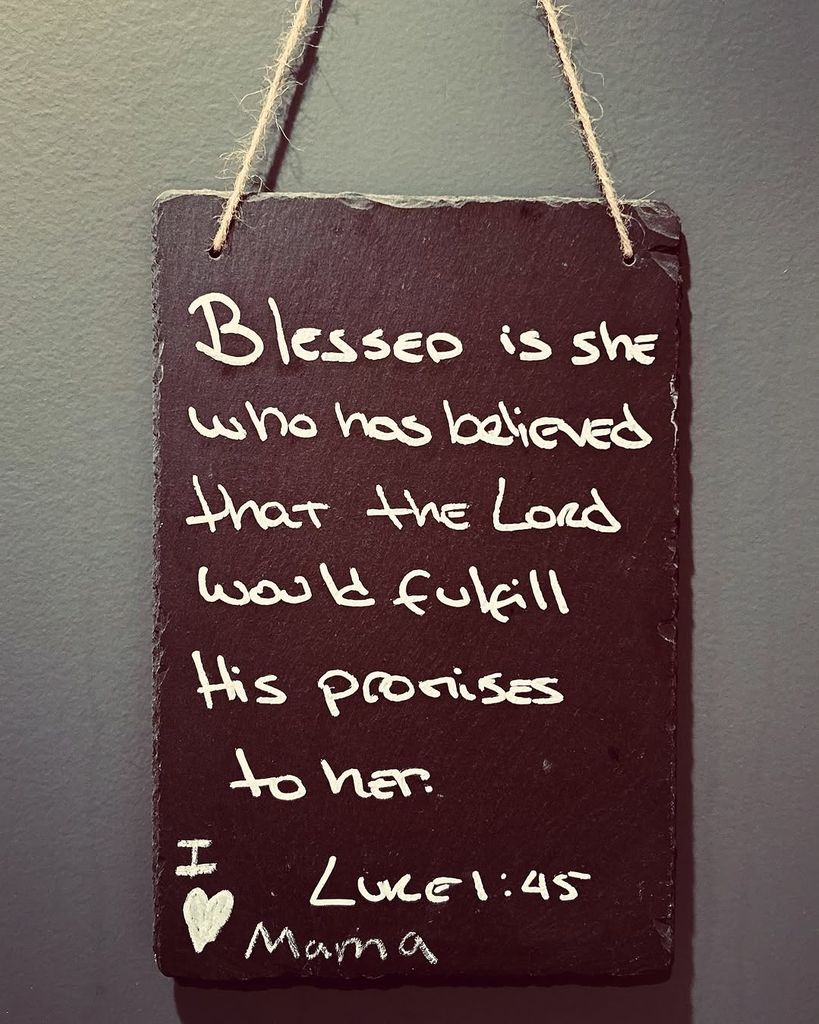 Blessed is she
who has believed
that the Lord
would fulfill
His promises
to her.
Luke 1:45
I
♥ Mama